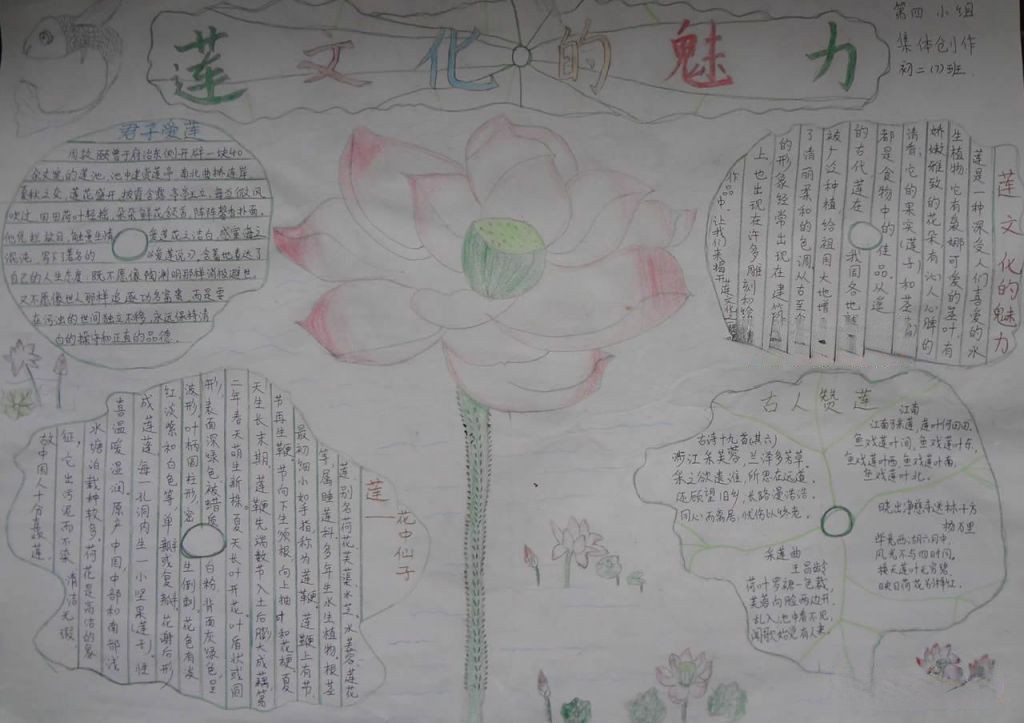 莲文化的魅力
第四小组
集体创作
初二(7)班
君子爱莲
周敦颐曾于府治东侧开辟一块40
余丈宽的莲池,池中建赏莲亭,南北曲桥连岸,
夏秋之交,莲花盛开,披霞含露,亭亭玉立,每当微风
吹过,田田荷叶轻摇,朵朵鲜花欲言,阵阵馨香扑面,
他凭栏放目,触景生情 爱莲花之洁白,感宦海之
混沌,写下了著名的 《爱莲说》,含蓄地表达了
自己的人生态度:既不愿像陶渊明那样消极避世,
又不愿像世人那样追逐功名富贵,而是要
在污浊的世间独立不移,永远保持清
白的操守和正直的品德。
莲文化的魅力
莲是一种深受人们喜爱的水
生植物,它有袅娜可爱的茎叶,有
娇嫩雅致的花朵,有沁人心脾的
清香,它的果实(莲子)和茎(藕)
都是食物中的佳品,从遥
的古代,莲在 我国各地就
被广泛种植,给祖国大地增
了清丽柔和的色调,从古至今
的形象经常出现在建筑
上,也出现在许多雕刻和绘
作品中,让我们来揭开莲文化
莲——花中仙子
莲,别名荷花、芙蕖、水芝、水芙蓉、莲花
等,属睡莲科多年生水生植物。根茎
最初细小如手指,称为莲鞭,莲鞭上有节,
节再生鞭,节向下生须根,向上抽叶和花梗,夏
天生长末期,莲鞭先端数节入土后膨大成藕,第
二年春天萌生新株,夏天长叶开花,叶盾状或圆
形,表面深绿色,被蜡质 白粉,背面灰绿色,呈
波形,叶柄圆柱形,密 生倒刺。花色有淡
红、淡紫和白色等,单瓣或复瓣,花谢后形
成莲蓬,每一孔洞内生一小坚果(莲子)。性
喜温暖湿润,原产中国,中部和南部浅
水塘泊栽种较多,荷花是高洁的象
征,它出污泥而不染,清洁无瑕,
故中国人十分喜爱莲
古人赞莲
古诗十九首(其六)
涉江采芙蓉,兰泽多芳草,
采之欲遗谁,所思在远道。
还顾望旧乡,长路漫浩浩。
同心而离居,忧伤以终老。
江南
江南可采莲,莲叶何田田,
鱼戏莲叶间,鱼戏莲叶东,
鱼戏莲叶西,鱼戏莲叶南,
鱼戏莲叶北。
晓出净慈寺送林子方
杨万里
毕竟西湖六月中,
风光不与四时同。
接天莲叶无穷碧
映日荷花别样红。
采莲曲
王昌龄
荷叶罗裙一色裁,
芙蓉向脸两边开。
乱入池中看不见,
闻歌始觉有人来。